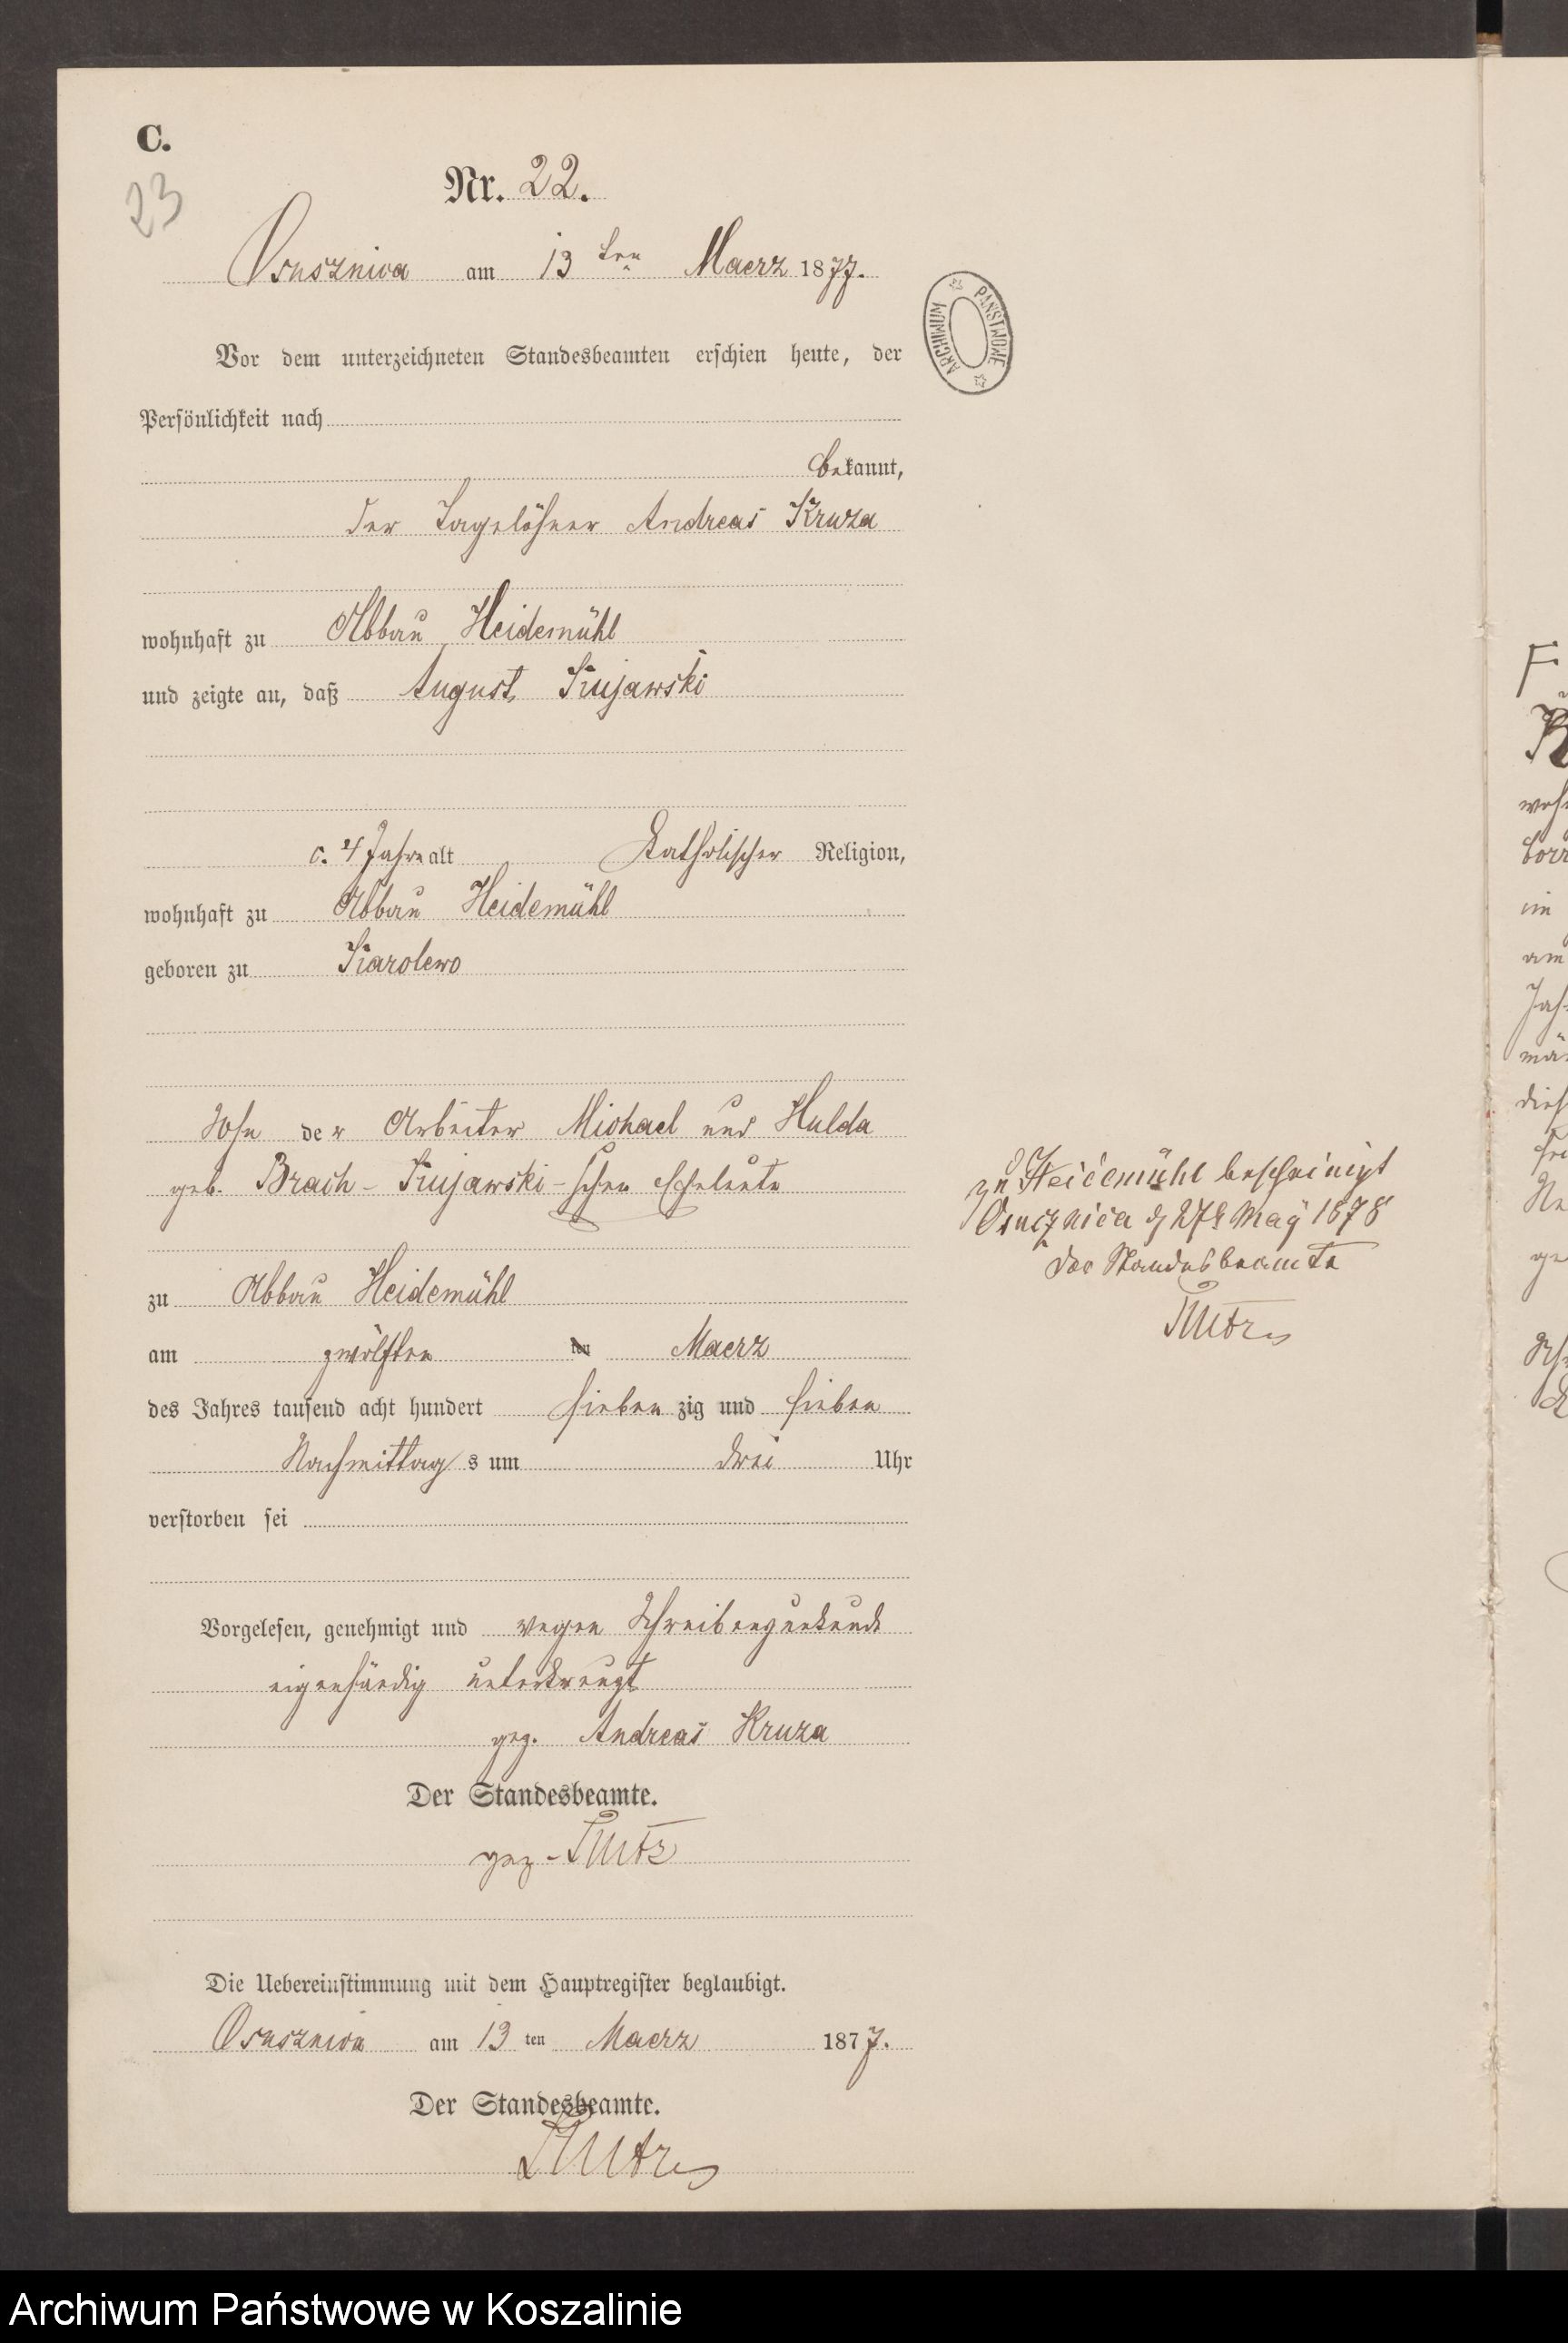 C.
23
Nr. 22.
Osusznica am 13 ten Maerz 1877.
ARCHIWUM PAŃSTWOWE
Vor dem unterzeichneten Standesbeamten erschien heute, der
Persönlichkeit nach
bekannt,
der Tagelöhner Andreas Kruza
wohnhaft zu Abbau Heidemühl
und zeigte an, daß August Kujawski
c. 4 Jahre alt Katholischer Religion,
wohnhaft zu Abbau Heidemühl
geboren zu Karolewo
Sohn der Arbeiter Michael und Hulda
geb. Brach - Kujawski - schen Eheleute
zu Abbau Heidemühl
am zwölften ten Maerz
des Jahres tausend acht hundert sieben zig und sieben
Nachmittag s um drei Uhr
verstorben sei
Vorgelesen, genehmigt und wegen Schreibensunkunde
eigenhändig unterkreuzt
gez. Andreas Kruza
Der Standesbeamte.
gez -
Die Uebereinstimmung mit dem Hauptregister beglaubigt.
Osusznica am 13 ten Maerz 1877.
Der Standesbeamte.
zu Heidemühl bescheinigt
Osusznica 27 May 1878
Der Standesbeamte
Archiwum Państwowe w Koszalinie